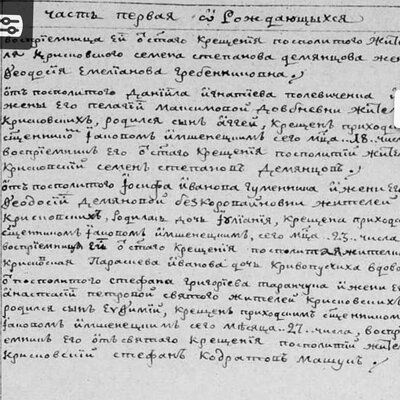 часть первая ѿ Рождающыхся
воспрїемница ей ѿ стаго Крещенїя посполитого жите
ля Крисновского семена степанова демянцова жен
Ѳеодосїя Емелїанова Гребеннико
ѿть посполитого данїила игнатїева
жены его пелагїи Максимовой жите
Крисновскихъ, родился сынъ Аггей, Крещенъ приход
сщенникомъ Iаковомъ Имшенецкимъ сего мца 18 числ
воспрїемникъ его ѿ стаго Крещенїя посполитїй жите
Крисновскїй семенъ степановъ демянцовъ.
ѿть посполитого Iосифа Иванова гуменника и жени ег
Ѳеодосїи демяновой жителей
Крисновскихъ, родилась дочь Iулїанїя, Крещена прихо
сщенникомъ Iаковомъ Имшенецкимъ, сего мца 23 числа
воспрїемница ей ѿ стаго Крещенїя посполитая жител
Крисновская Параскева Иванова дочь Кривопусчиха вдов
ѿ посполитого стефана григорїева таранчука и жени е
анастасїи петровой жителей Крисновских
родился сынъ Еуѳимїй, Крещенъ приходскимъ сщеннико
Iаковомъ Имшенецкимъ сего месяца 27 числа, воспр
емникъ его ѿть святаго Крещенїя посполитїй жите
Крисновскїй стефанъ Кодратовъ